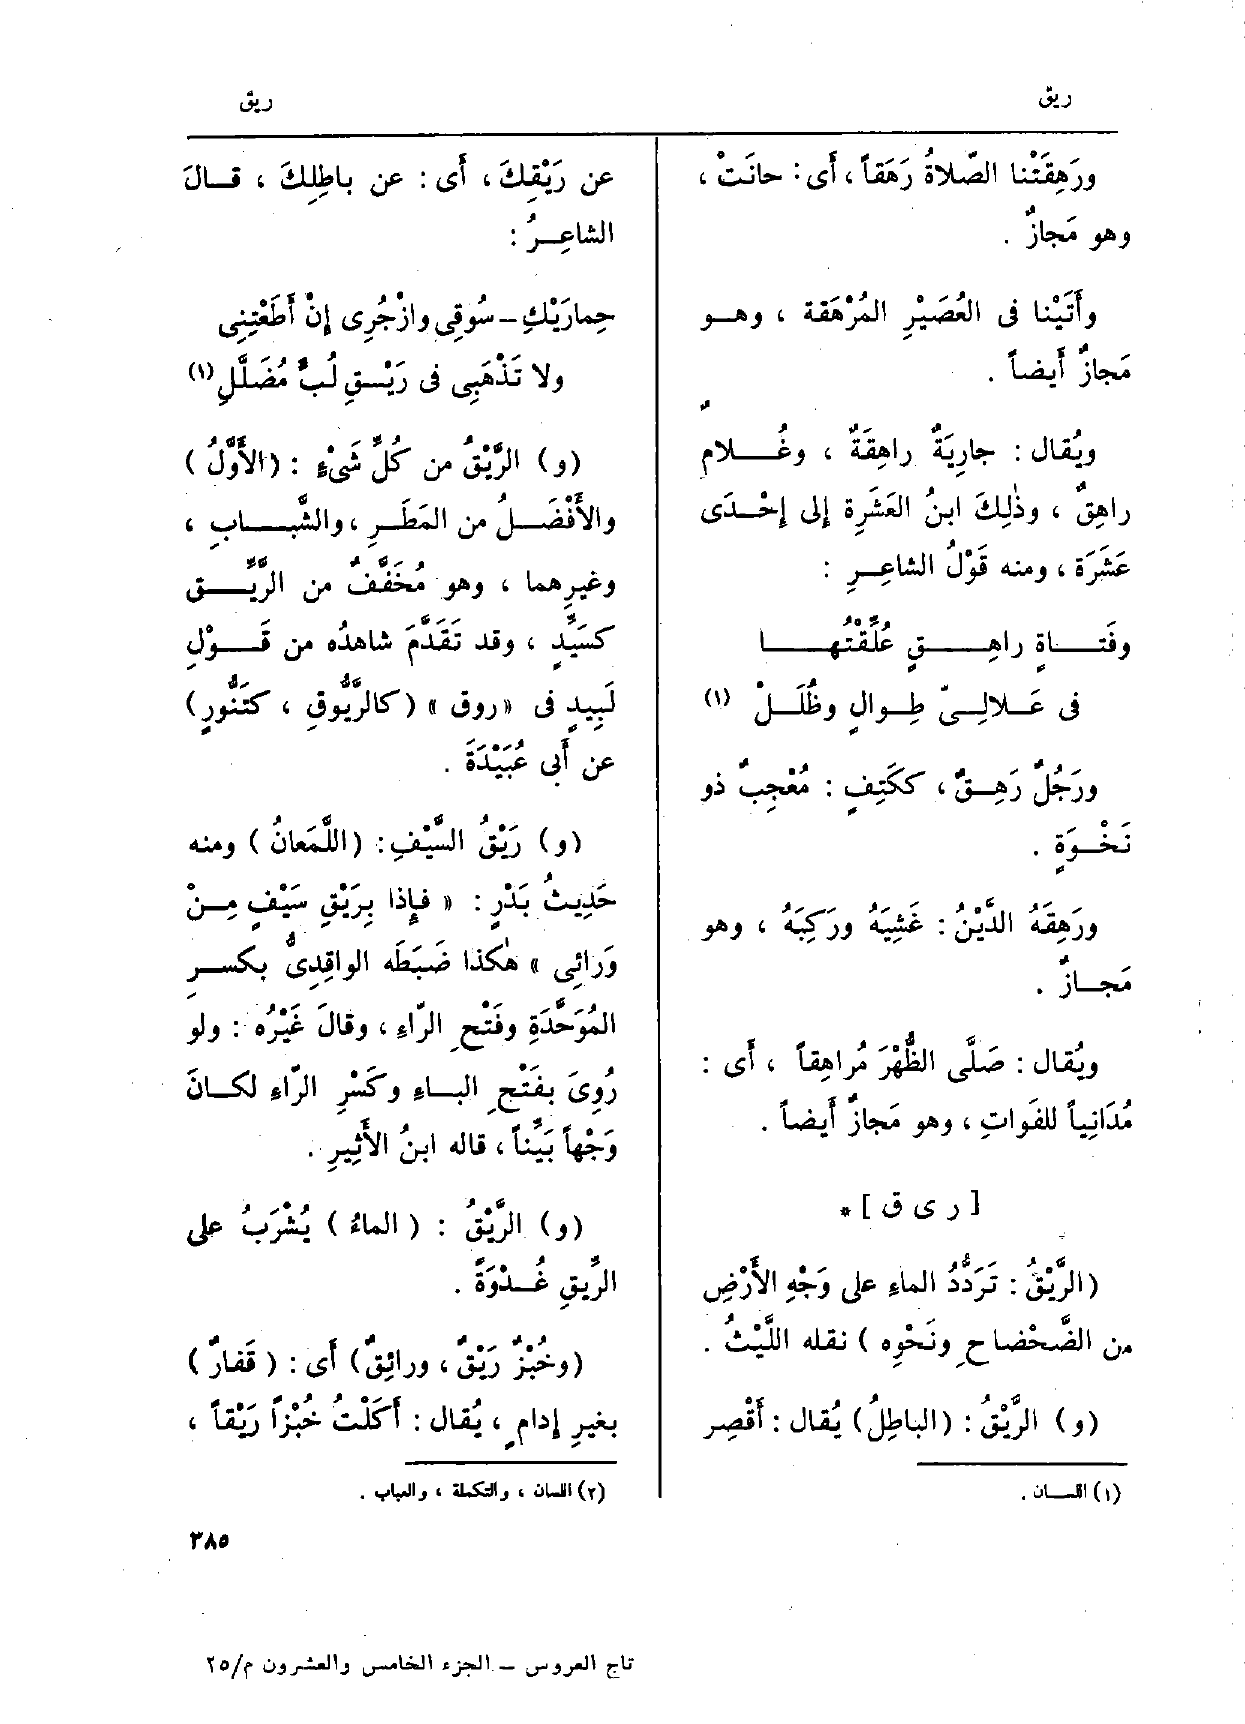 ريق
ريق
ورَهِقَتْنا الصّلاةُ رَهَقاً ، أى : حانَتْ ،
وهو مَجازٌ .
وأَتَيْنا فى العُصَيْرِ المُرْهَقة ، وهــو
مَجازٌ أَيضاً .
ويُقال : جارِيَةٌ راهِقَةٌ ، وغُــــلامٌ
راهِقٌ ، وذٰلِكَ ابنُ العَشَرة إِلى إِحْــدَى
عَشَرَة ، ومنه قَوْلُ الشاعِــرِ :
وفَتــــاةٍ راهِــــــقٍ عُلِّقْتُهــــــا
فى عَــلالِــىّ طِــوالٍ وظُلَــلْ (١)
ورَجُلٌ رَهِــقٌ ، ككَتِفٍ : مُعْجِبٌ ذو
نَخْــوَةٍ .
ورَهِقَهُ الدَّيْنُ : غَشِيَهُ ورَكِبَهُ ، وهو
مَجــازٌ .
ويُقال : صَلَّى الظُّهْرَ مُراهِقاً ، أَى :
مُدَانِياً للفَواتِ ، وهو مَجازٌ أَيضاً .
[ ر ى ق ] *
(الرَّيْقُ : تَرَدُّدُ الماءِ على وَجْهِ الأَرْضِ
من الضَّحْضاحِ ونَحْوِه ) نقله اللَّيْثُ .
(و) الرَّيْقُ : (الباطِلُ) يُقال : أَقْصِر
(١) اللســان .
عن رَيْقِكَ ، أَى : عن باطِلِكَ ، قــالَ
الشاعِــرُ :
حِمارَيْكِ – سُوقِى وازْجُرِى إِنْ أَطَعْتِنِى
ولا تَذْهَبِى فى رَيْــقِ لُبٍّ مُضَلَّلِ (١)
(و) الرَّيْقُ من كُلِّ شَىْءٍ : (الأَوَّلُ )
والأَفْضَــلُ من المَطَــرِ ، والشَّبــــابِ ،
وغيرِهما ، وهو مُخَفَّفٌ من الرَّيِّــــق
كسَيِّدٍ ، وقد تَقَدَّمَ شاهدُه من قَــوْلِ
لَبِيدٍ فى «روق » (كالرَّيُّوقِ ، كتَنُّورٍ)
عن أَبى عُبَيْدَةَ .
(و) رَيْقُ السَّيْفِ : (اللَّمَعانُ ) ومنه
حَدِيثُ بَدْرٍ : « فإِذا بِرَيْقِ سَيْفٍ مِــنْ
وَرائِى » هٰكذا ضَبَطَه الواقِدِىُّ بكســرِ
المُوَحَّدَةِ وفَتْحِ الرّاءِ ، وقالَ غَيْرُه : ولو
رُوِىَ بفَتْحِ البــاءِ وكَسْرِ الرّاءِ لكــانَ
وَجْهاً بَيِّناً ، قاله ابنُ الأَثِيرِ .
(و) الرَّيْقُ : ( الماءُ ) يُشْرَبُ على
الرِّيقِ غُــدْوَةً .
(وخُبْزٌ رَيْقٌ ، ورائِقٌ) أَى : ( قَفارٌ )
بغيرِ إِدامٍ ، يُقال : أَكَلْتُ خُبْزاً رَيْقاً ،
(٢) اللسان ، والتكملة ، والعباب .
٣٨٥
تاج العروس – الجزء الخامس والعشرون م/٢٥